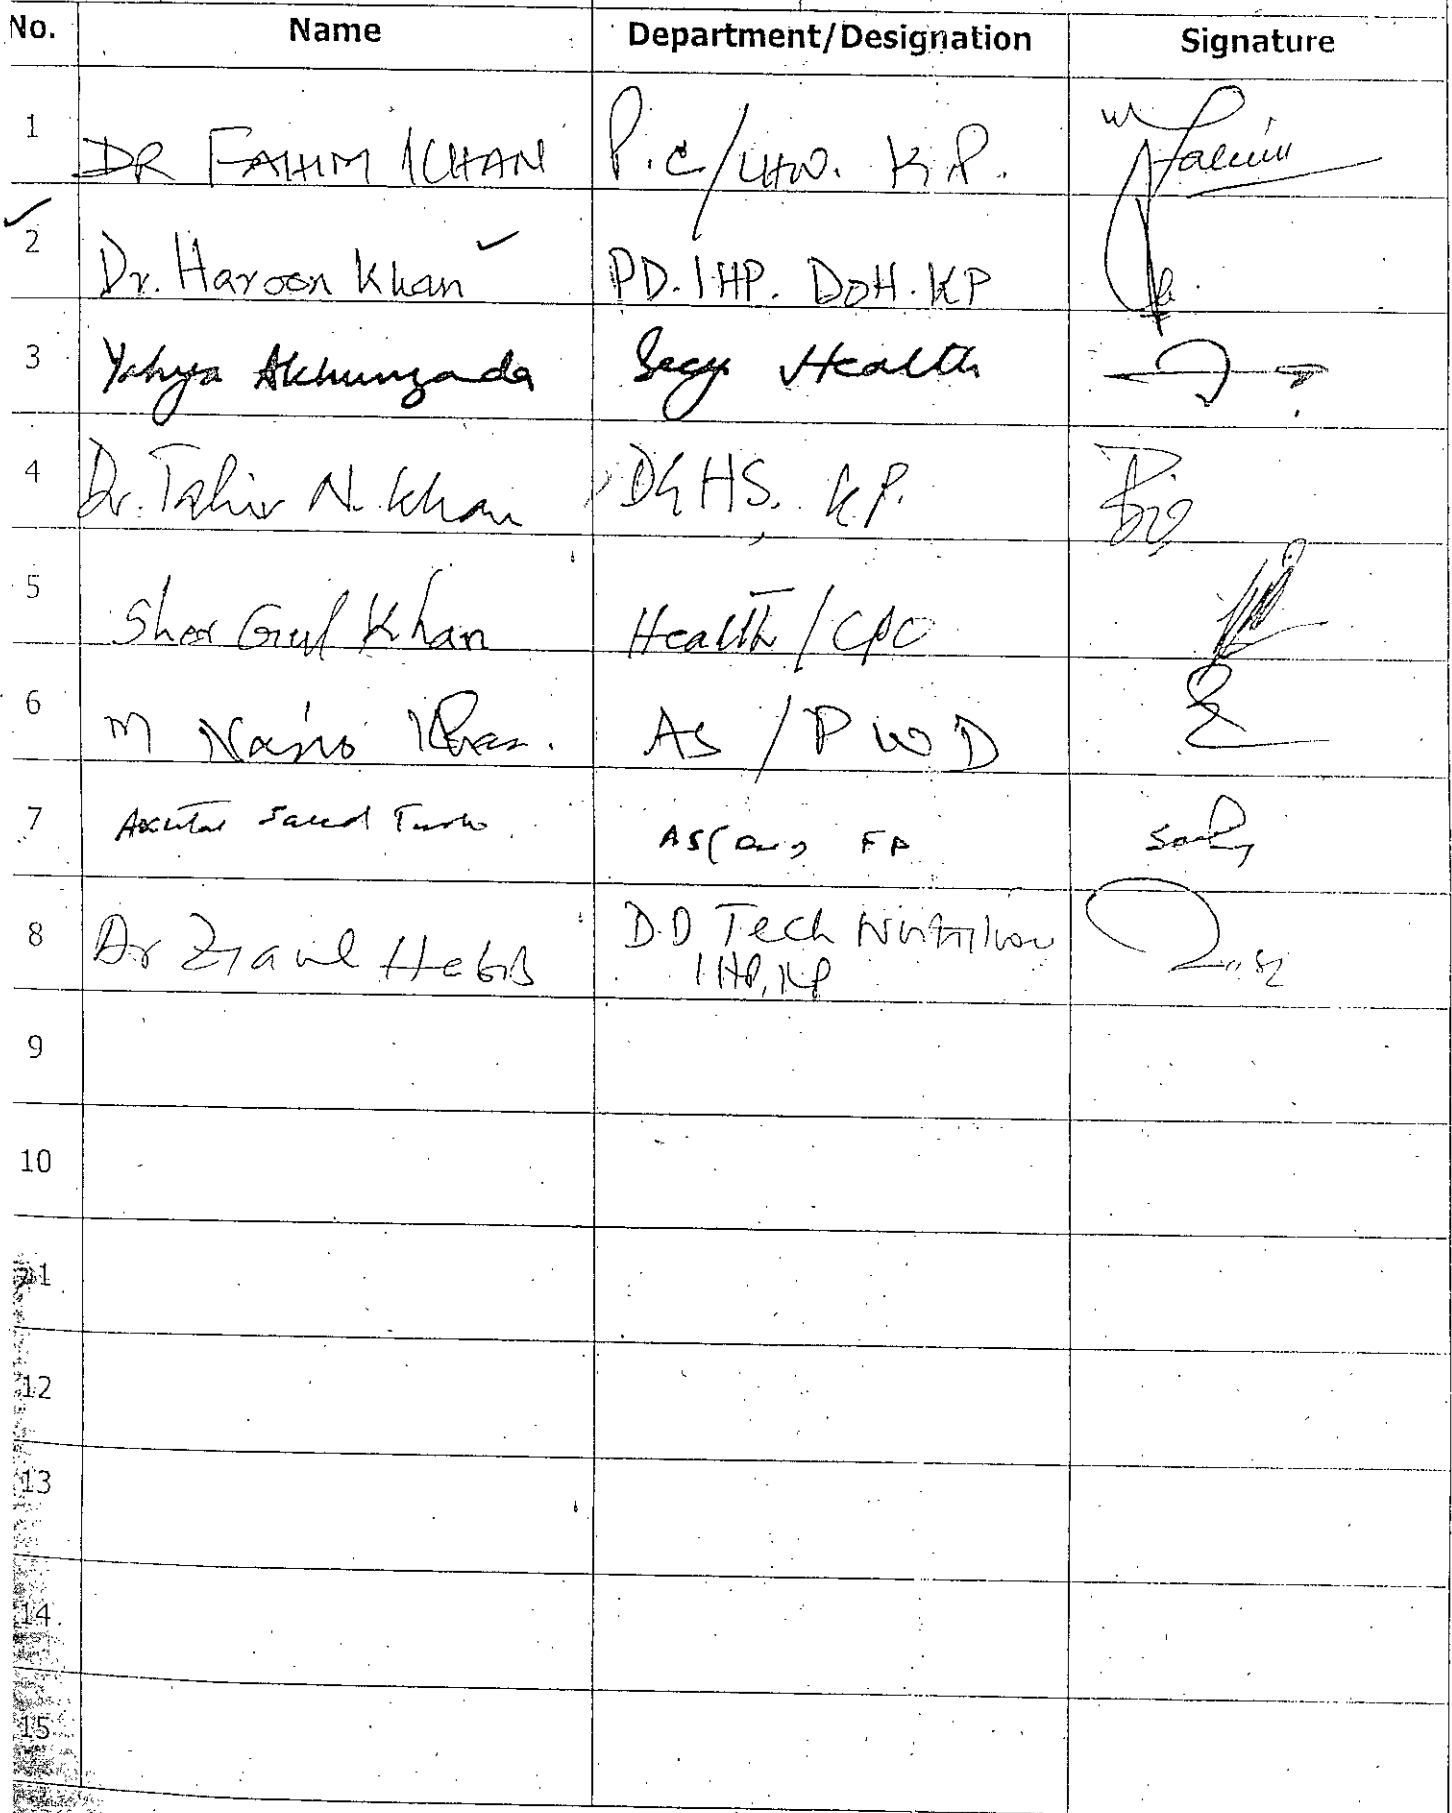 No. Name Department/Designation Signature
1 DR FAHIM KHAN P.C/LHW. K.P. Faheem
2 Dr. Haroon Khan PD. IHP. DoH. KP
3 Yahya Akhunzada Secy Health
4 Dr. Tahir N. Khan DGHS. KP.
5 Sher Gul Khan Health / CPO
6 M Khan. AS / PWD
7 Saeed AS( FA
8 Dr Ziaul Habib D.D Tech Nutrition
IHP, KP
9
10
11
12
13
14
15